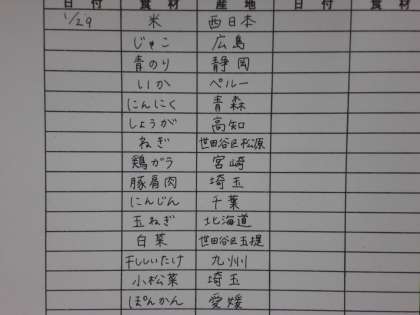 日 付 食 材 産 地 日 付 食 材
1/29 米 西日本
じゃこ 広島
青のり 静岡
いか ペルー
にんにく 青森
しょうが 高知
ねぎ 世田谷区松原
鶏ガラ 宮崎
豚肩肉 埼玉
にんじん 千葉
玉ねぎ 北海道
白菜 世田谷区玉堤
干ししいたけ 九州
小松菜 埼玉
ぽんかん 愛媛